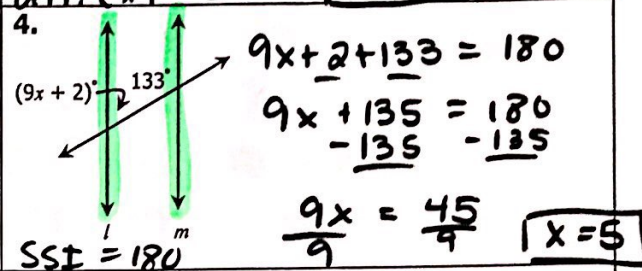 4.
(9x + 2)° 133°
l m
SSI = 180
9x + 2 + 133 = 180
9x + 135 = 180
- 135 - 135
9x = 45
9 9
x = 5